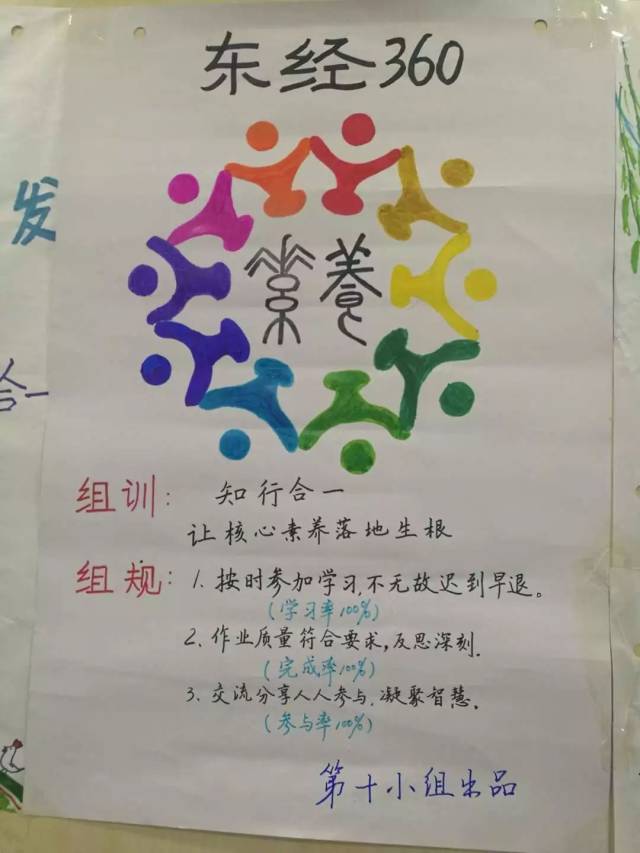 东经360
素养
发
合一
组训：知行合一
让核心素养落地生根
组规：1.按时参加学习,不无故迟到早退。
(学习率100%)
2、作业质量符合要求,反思深刻.
(完成率100%)
3、交流分享人人参与,凝聚智慧.
(参与率100%)
第十小组出品